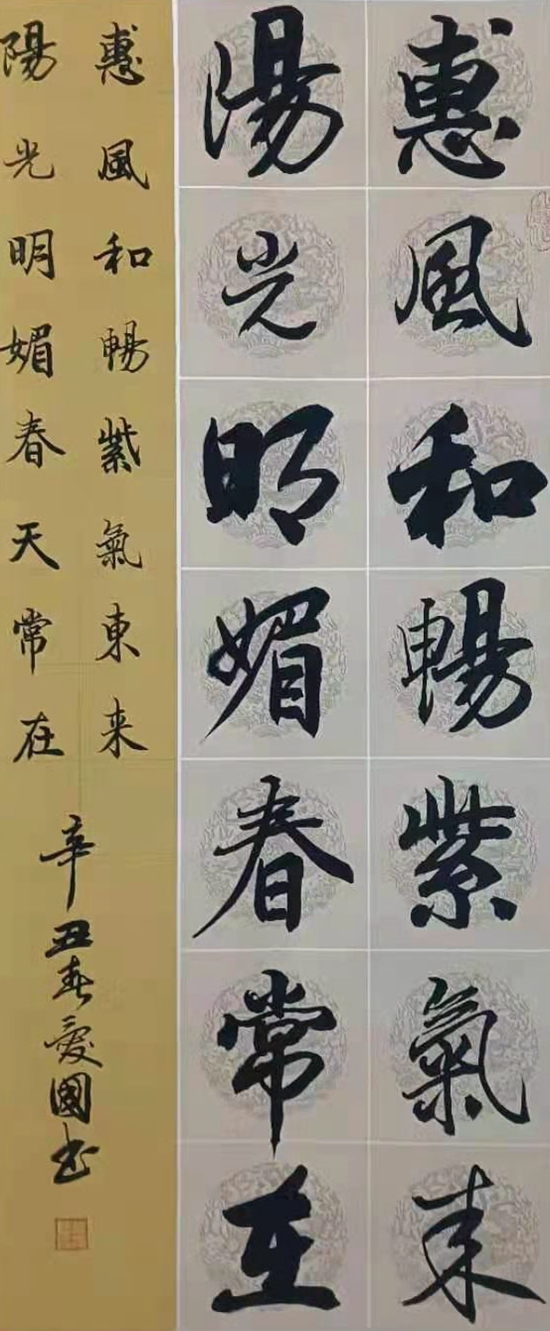 惠風和暢紫氣来
陽光明媚春常在
惠風和暢紫氣東来
陽光明媚春天常在
辛丑春愛國书